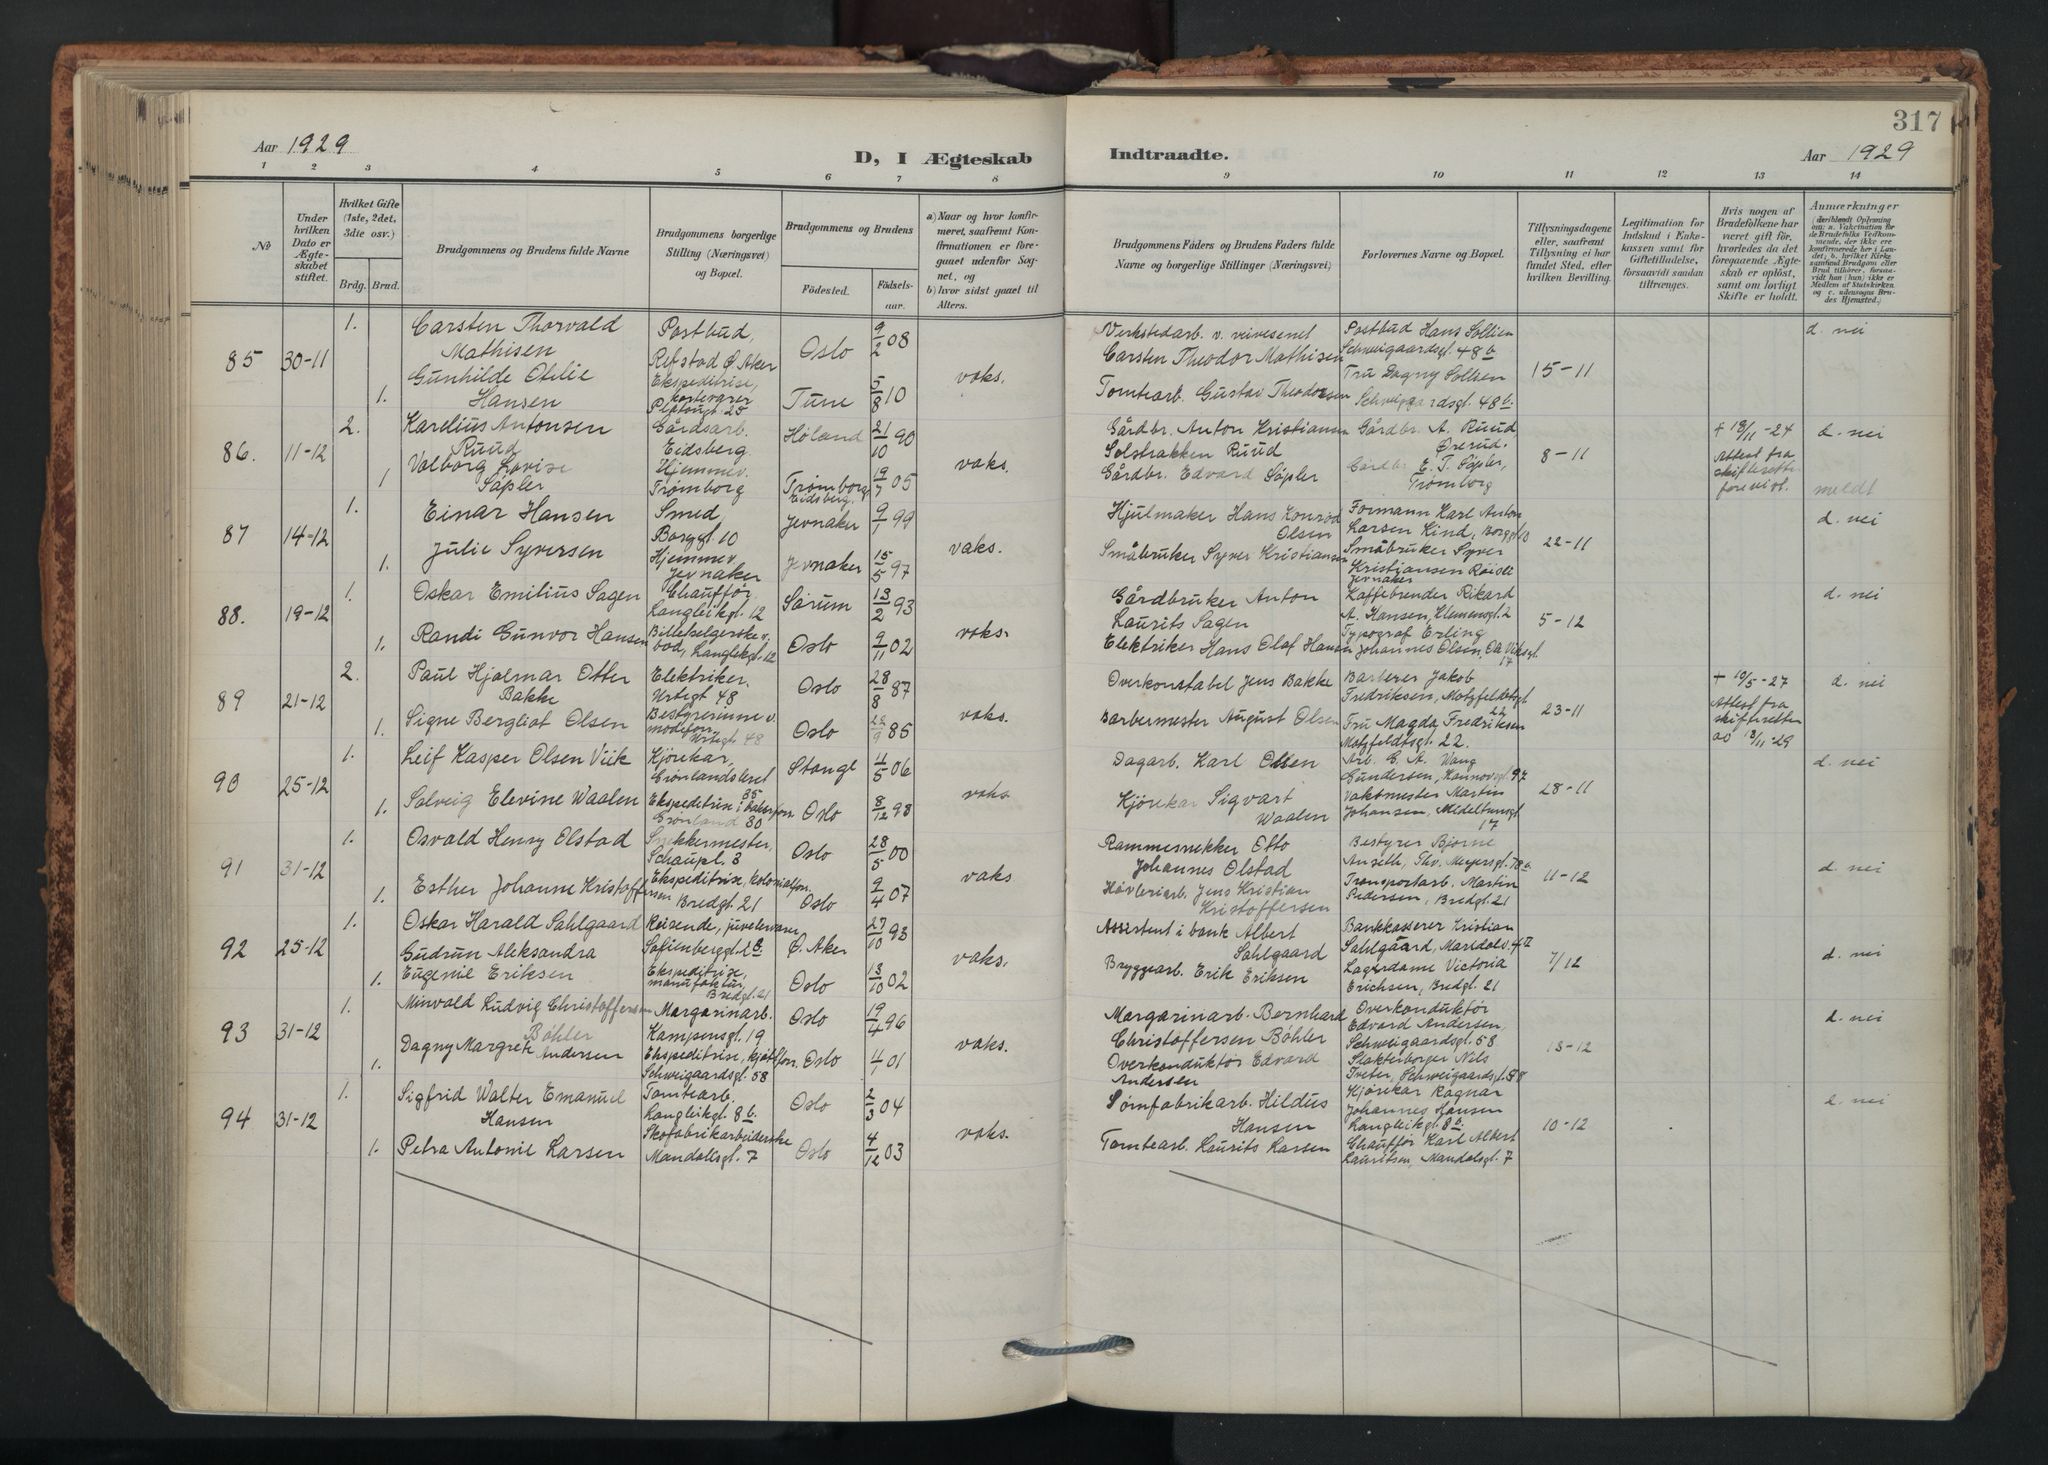 317
Aar 1929
D, I Ægteskab
Indtraadte.
Aar 1929
1 2 3 4 5 6 7 8 9 10 11 12 13 14
No
Under hvilken Dato er Ægteskabet stiftet.
Hvilket Gifte (1ste, 2det, 3die osv.)
Brdg. Brud.
Brudgommens og Brudens fulde Navne
Brudgommens borgerlige Stilling (Næringsvei) og Bopæl.
Brudgommens og Brudens
Fødested. Fødselsaar.
a) Naar og hvor konfirmeret, saafremt Konfirmationen er foregaaet udenfor Sognet, og
b) hvor sidst gaaet til Alters.
Brudgommens Faders og Brudens Faders fulde Navne og borgerlige Stillinger (Næringsvei)
Forlovernes Navne og Bopæl.
Tillysningsdagene eller, saafremt Tillysning ei har fundet Sted, efter hvilken Bevilling.
Legitimation for Indskud i Enkekassen samt for Giftetilladelse, forsaavidt saadan tiltrænges.
Hvis nogen af Brudefolkene har været gift før, hvorledes da det foregaaende Ægteskab er opløst, samt om lovligt Skifte er holdt.
Anmærkninger
(deriblandt Oplysning om: a. Vakcination for de Brudefolks Vedkommende, der ikke ere konfirmerede her i Landet; b. hvilket Kirkesamfund Brudgom eller Brud tilhører, forsaavidt han (hun) ikke er Medlem af Statskirken og c. udensogns Brudes Hjemsted.)
85 30-11
1. Carsten Thorvald Mathisen
Postbud, Refstad Ø. Aker
Oslo 9/2 08
Verkstedarb. v. veivesenet Carsten Theodor Mathisen
Postbud Hans Sollien Schweigaardsgt. 48 b
1. Gunhilde Otelie Hansen
Ekspeditrise, 25
Tune 5/8 10
vaks.
Tomtearb. Gustav Theodorsen
Fru Dagny Sollien Schweigaardsgt. 48 b.
15-11
d. nei
86. 11-12
2. Karelius Antonsen Ruud
Gårdsarb. Eidsberg
Høland 21/10 90
Gårdbr. Anton Kristiansen Solstrakken Ruud
Gårdbr. A. Ruud, Ørerud.
1 Valborg Lovise Säpler
Hjemmev. Trømborg
Trømborg Eidsberg. 19/7 05
vaks.
Gårdbr. Edvard Säpler
Gårdbr. E. T. Säpler, Trømborg
8-11
+ 18/11-24 Attest fra skifteretten forevist.
d. nei
meldt
87 14-12
1. Einar Hansen
Smed, Borggt 10
Jevnaker 9/1 99
Hjulmaker Hans Konrod Olsen
Formann Karl Anton Larsen Kind, Borggt 10
1. Julie Syversen
Hjemmev Jevnaker
Jevnaker 15/5 97
vaks.
Småbruker Syver Kristiansen
Småbruker Syver Kristiansen Røisli Jevnaker
22-11
d. nei
88. 19-12
1. Oskar Emilius Sagen
Chauffør. Langleikgt. 12
Sørum 13/2 93
Gårdbruker Anton Laurits Sagen
Kaffebrender Rikard A. Hansen, Klemensgt. 2
1. Randi Gunvor Hansen
Billetselgerske v. bod, Langleikgt. 12
Oslo 9/11 02
vaks.
Elektriker Hans Olaf Hansen
Typograf Erling Johannes Olsen, 17
5-12
d. nei
89 21-12
2. Paul Hjalmar Otter Bakke
Elektriker. Urtegt 48
Oslo 28/8 87
Overkonstabel Jens Bakke
Barberer Jakob Fredriksen, Motzfeldtsgt 22
1. Signe Bergliot Olsen
Bestyrerinne v. Urtegt. 48
Oslo 22/9 85
vaks.
Barbermester August Olsen
Fru Magda Fredriksen Motzfeldtsgt. 22.
23-11
+ 10/5-27 Attest fra skifteretten 13/11-29
d. nei
90 25-12
1. Leif Kasper Olsen Viik
Kjørekar, Grønlandsleret 35
Stange 4/5 06
Dagarb. Karl Olsen
Arb. C. A. Vang Gundersen,
1. Solveig Elevine Waalen
Ekspeditrise i Grønland 30
Oslo 8/12 98
vaks.
Kjørekar Sigvart Waalen
Vaktmester Martin Johansen, Meldeltunsgt 17
28-11
d. nei
91 31-12
1. Osvald Henry Olstad
Snekkermester, Schaupl. 3
Oslo 28/5 00
Rammesnekker Otto Johannes Olstad
Bestyrer Bjarne Anzeth, Thv. Meyersgt. 78 b
1. Esther Johanne Kristoffersen
Ekspeditrise, kolonialforr. Bredgt. 21
Oslo 2/4 07
vaks
Høvleriarb. Jens Kristian Kristoffersen
Transportarb. Martin Pedersen, Bredgt. 21
11-12
d. nei
92 25-12
1. Oskar Harald Sahlgaard
Reisende, juvelervarer Sofienberggt.
Ø. Aker 27/10 93
Assistent i bank Albert Sahlgaard
Bankkasserer Kristian Sahlgaard, Maridalsv. 4 II
1. Gudrun Aleksandra Eugenie Eriksen
Ekspeditrise, manufaktur, Bredgt. 21
Oslo 13/10 02
vaks.
Bryggearb. Erik Eriksen
Lagerdame Victoria Erichsen, Bredgt. 21
7/12
d. nei
93 31-12
1. Minvald Ludvig Christoffersen Bøhler
Margarinarb. Kampensgt. 19
Oslo 19/4 96
Margarinarb. Bernhard Christoffersen Bøhler
Overkonduktør Edvard Andersen, Schweigaardsgt. 58.
1. Dagny Margrete Andersen
Ekspeditrise, kjøttforr. Schweigaardsgt. 58
Oslo 4/1 01
vaks.
Overkonduktør Edvard Andersen
Slakterborger Nils Tveter, Schweigaardsgt. 58
13-12
d. nei
94 31-12
1. Sigfrid Walter Emanuel Hansen
Tomtearb. Langleikgt. 8 b.
Oslo 2/3 04
Sømfabrikarb. Hildus Hansen
Kjørekar Ragnar Johannes Hansen Langleikgt. 8 b.
1. Petra Antonie Larsen
Skofabrikarbeiderske Mandallsgt. 7
Oslo 4/12 03
vaks.
Tomtearb. Laurits Larsen
Chauffør Karl Albert Lauritsen, Mandalsgt. 7
10-12
d. nei